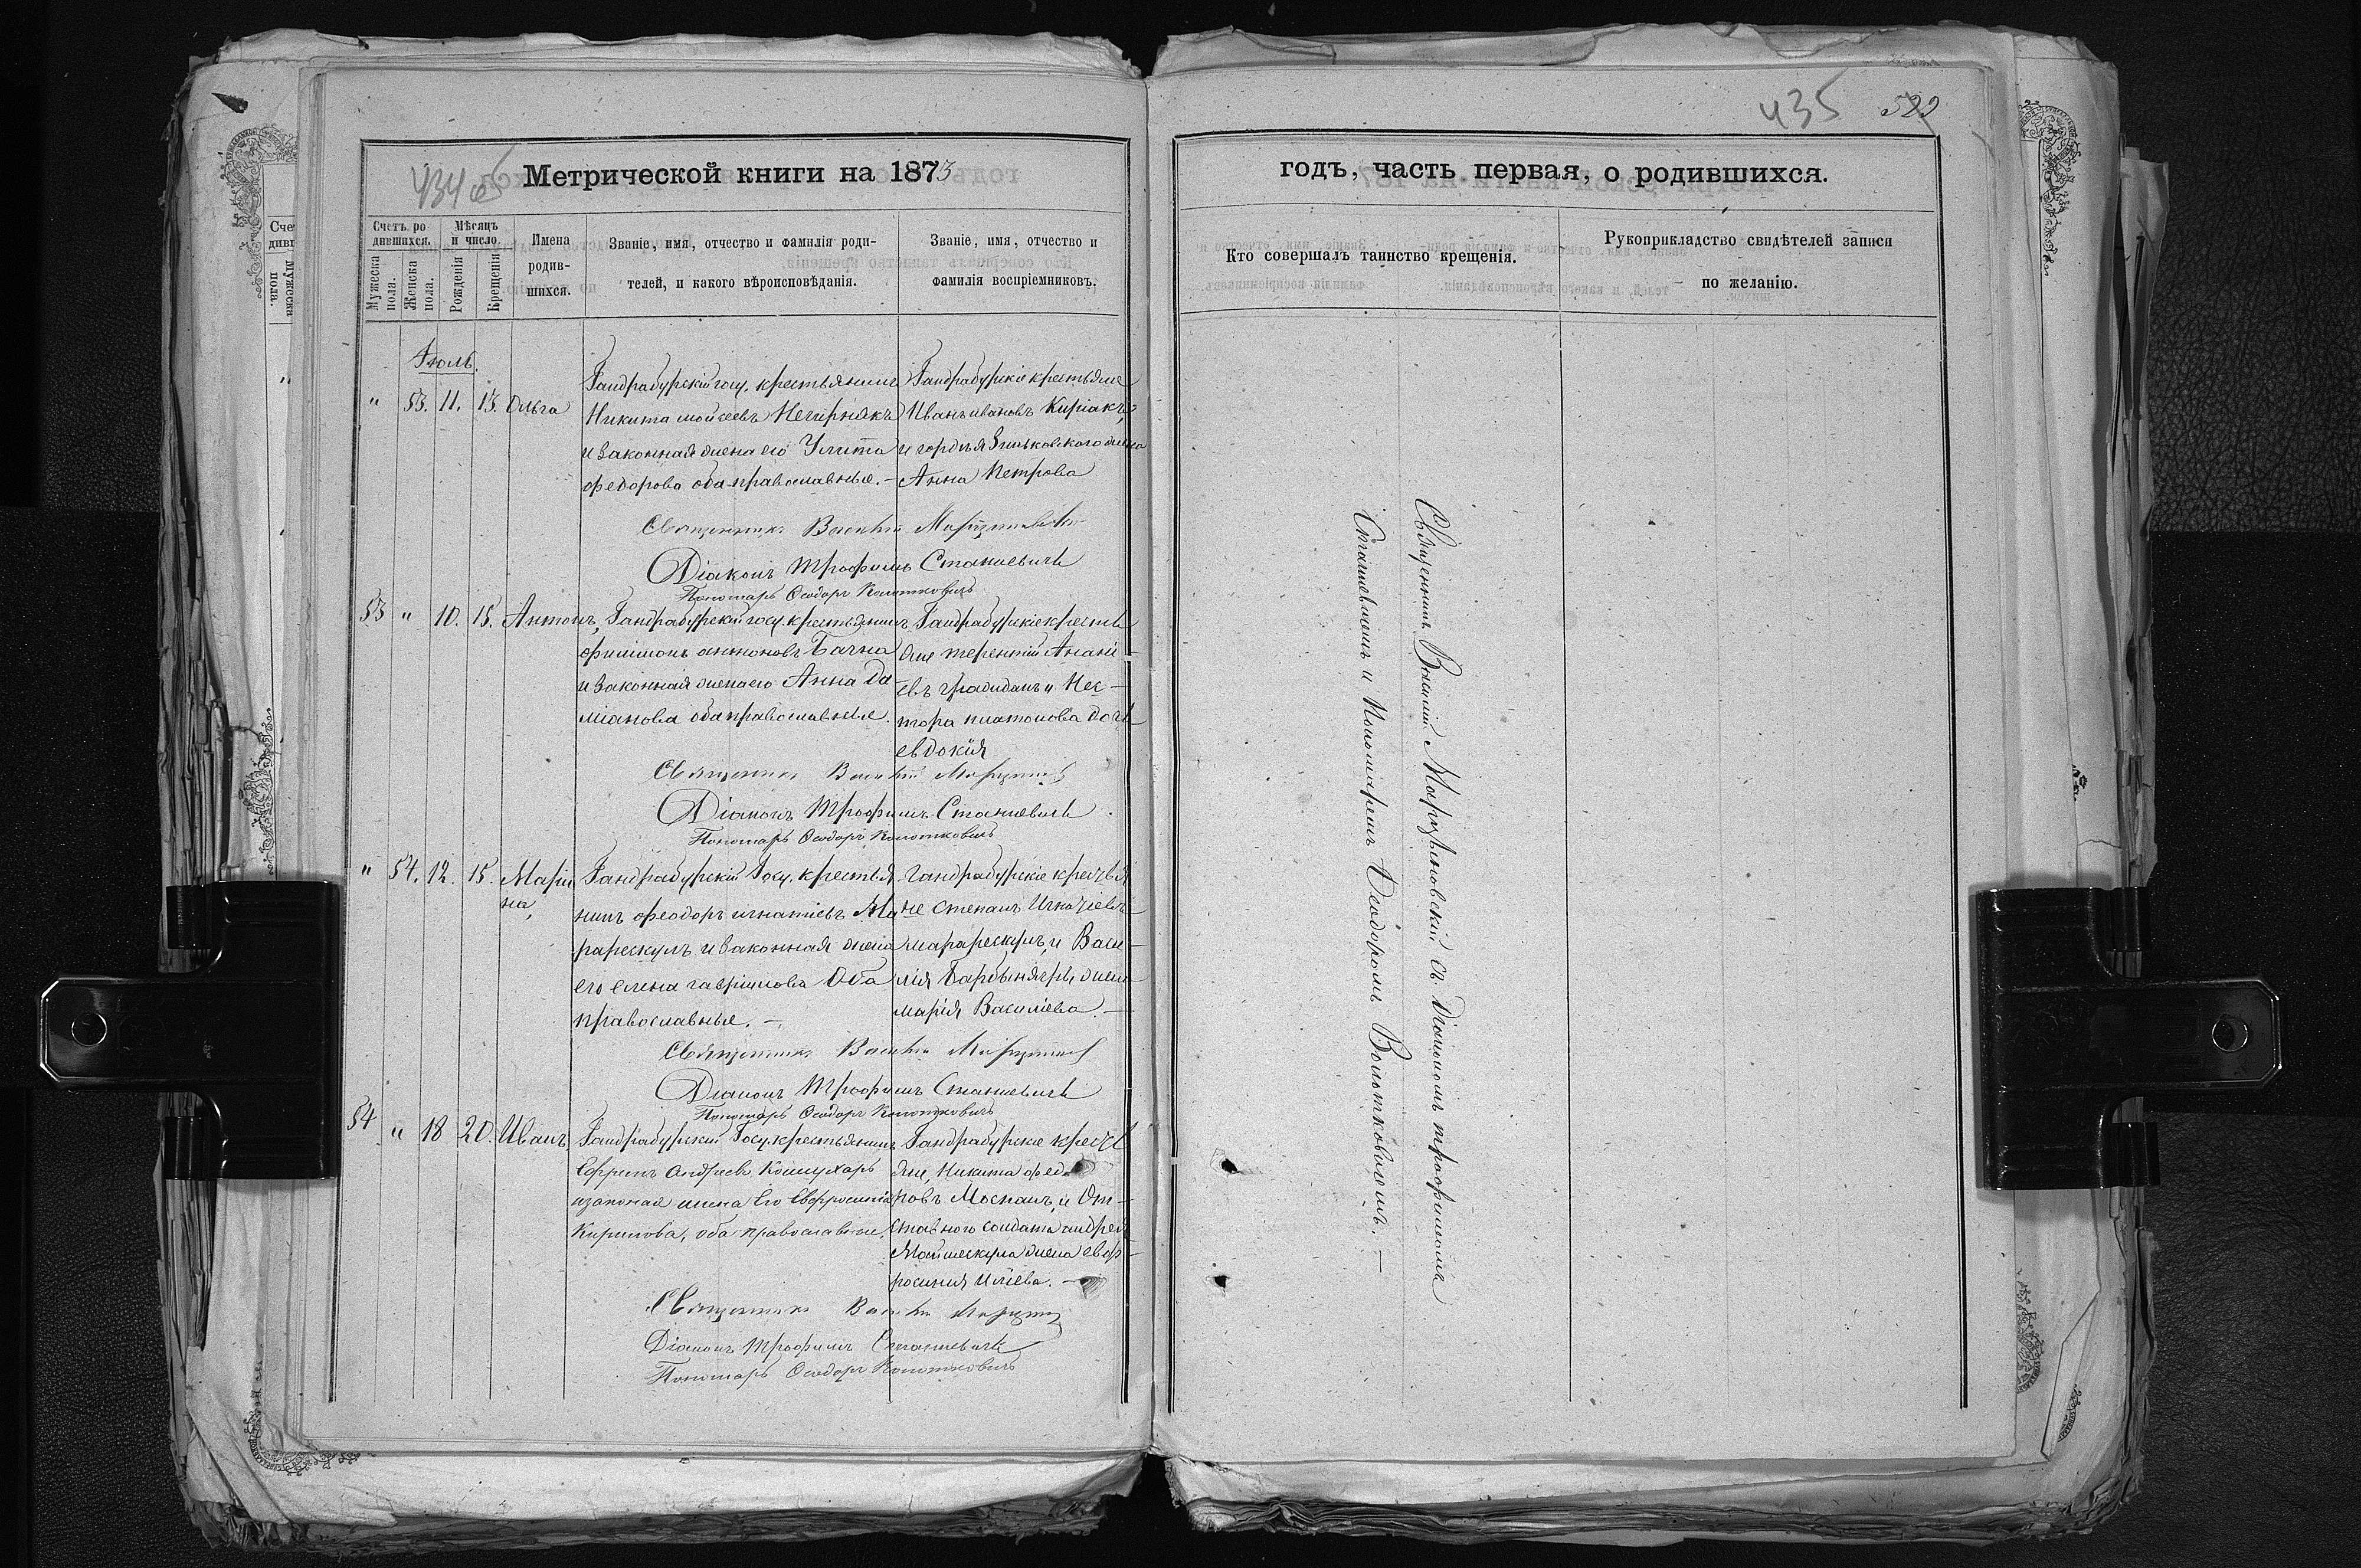 434 об
Метрической книги на 1873
Счетъ родившихся.
Мужеска пола.
Женска пола.
Мѣсяцъ и число.
Рожденія
Крещенія
Имена родившихся.
Званіе, имя, отчество и фамилія родителей, и какого вѣроисповѣданія.
Званіе, имя, отчество и фамилія воспріемниковъ.
Іюль.
" 53. 11. 13. Ольга
Гандрабурскій госу. крестьянинъ
Никита Мойсеевъ
и законная жена его Улита
Федорова оба православные. –
Гандрабурскіе крестьяне
Иванъ Ивановъ Киріакъ,
и Гордѣя Зиньковского жена
Анна Петрова
Священникъ Василій
Діаконъ Трофимъ Станиевичъ
Пономарь Ѳеодоръ Волотковичъ
53 " 10. 15. Антонъ,
Гандрабурскій госу. крестьянинъ
Филимонъ Антоновъ Бачна
и законная жена его Анна Да
міанова оба православные.
Гандрабурскіе кресть
яне Терентій Анані
евъ Гражданъ и Нес–
тора Платонова дочь
Евдокія
Священникъ Василій
Діаконъ Трофимъ Станиевичъ
Пономарь Ѳеодоръ Волотковичъ
" 54. 12. 15. Мари
на,
Гандрабурскій Госу. крестья
нинъ Феодоръ Игнатіевъ Ма
рарескулъ и законная жена
его Елена Гавріилова Оба
православные. –
Гандрабурскіе крестья
не Степанъ Игнатіевъ
Марарескулъ, и Васи–
лія жена
Марія Василіева. –
Священникъ Василій
Діаконъ Трофимъ Станиевичъ
Пономарь Ѳеодоръ Волотковичъ
54 " 18 20. Иванъ,
Гандрабурскій Госу. крестьянинъ
Ефремъ Андреевъ Кошухарь
и законая жена Его Евфросинія
Кирилова, оба православные,
Гандрабурскіе кресть
яне, Никита Федо
ровъ Моспанъ, и От–
ставного солдата Андрея
жена Евф–
росиния Иліева. –
Священникъ Василій
Діаконъ Трофимъ Станиевичъ
Пономарь Ѳеодоръ Волотковичъ
435 522
годъ, часть первая, о родившихся.
Кто совершалъ таинство крещенія.
Рукоприкладство свидѣтелей записи по желанію.
Священникъ Василій Марцѣновскій съ Діакономъ Трофимомъ
Станиевичемъ и Пономаремъ Ѳеодоромъ Волотковичемъ. –